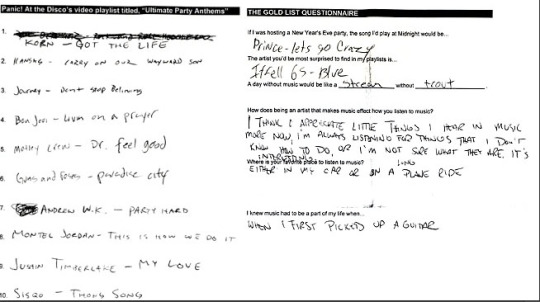 Panic! At the Disco's video playlist titled, "Ultimate Party Anthems"
1.
KORN - GOT THE LIFE
2. KANSAS - CARRY ON OUR WAYWARD SON
3. Journey - Dont Stop Believing
4. Bon Jovi - Livin on a prayer
5. Motley Crew - Dr. feel good
6. Guns and Roses - paradise city
7. ANDREW W.K. - PARTY HARD
8. MONTEL JORDAN - THIS IS HOW WE DO IT
9. JUSTIN TIMBERLAKE - MY LOVE
10. SISQO - THONG SONG
THE GOLD LIST QUESTIONNAIRE
If I was hosting a New Year's Eve party, the song I'd play at Midnight would be...
Prince - lets go Crazy
The artist you'd be most surprised to find in my playlists is...
Iffell 65 - Blue
A day without music would be like a stream without trout.
How does being an artist that makes music effect how you listen to music?
I THINK I APPRECIATE LITTLE THINGS I HEAR IN MUSIC
MORE NOW, I'M ALWAYS LISTENING FOR THINGS THAT I DON'T
KNOW HOW TO DO, OR I'M NOT SURE WHAT THEY ARE. IT'S
INTERESTING.
Where is your favorite place to listen to music?
EITHER IN MY CAR OR ON A LONG PLANE RIDE
I knew music had to be a part of my life when...
WHEN I FIRST PICKED UP A GUITAR